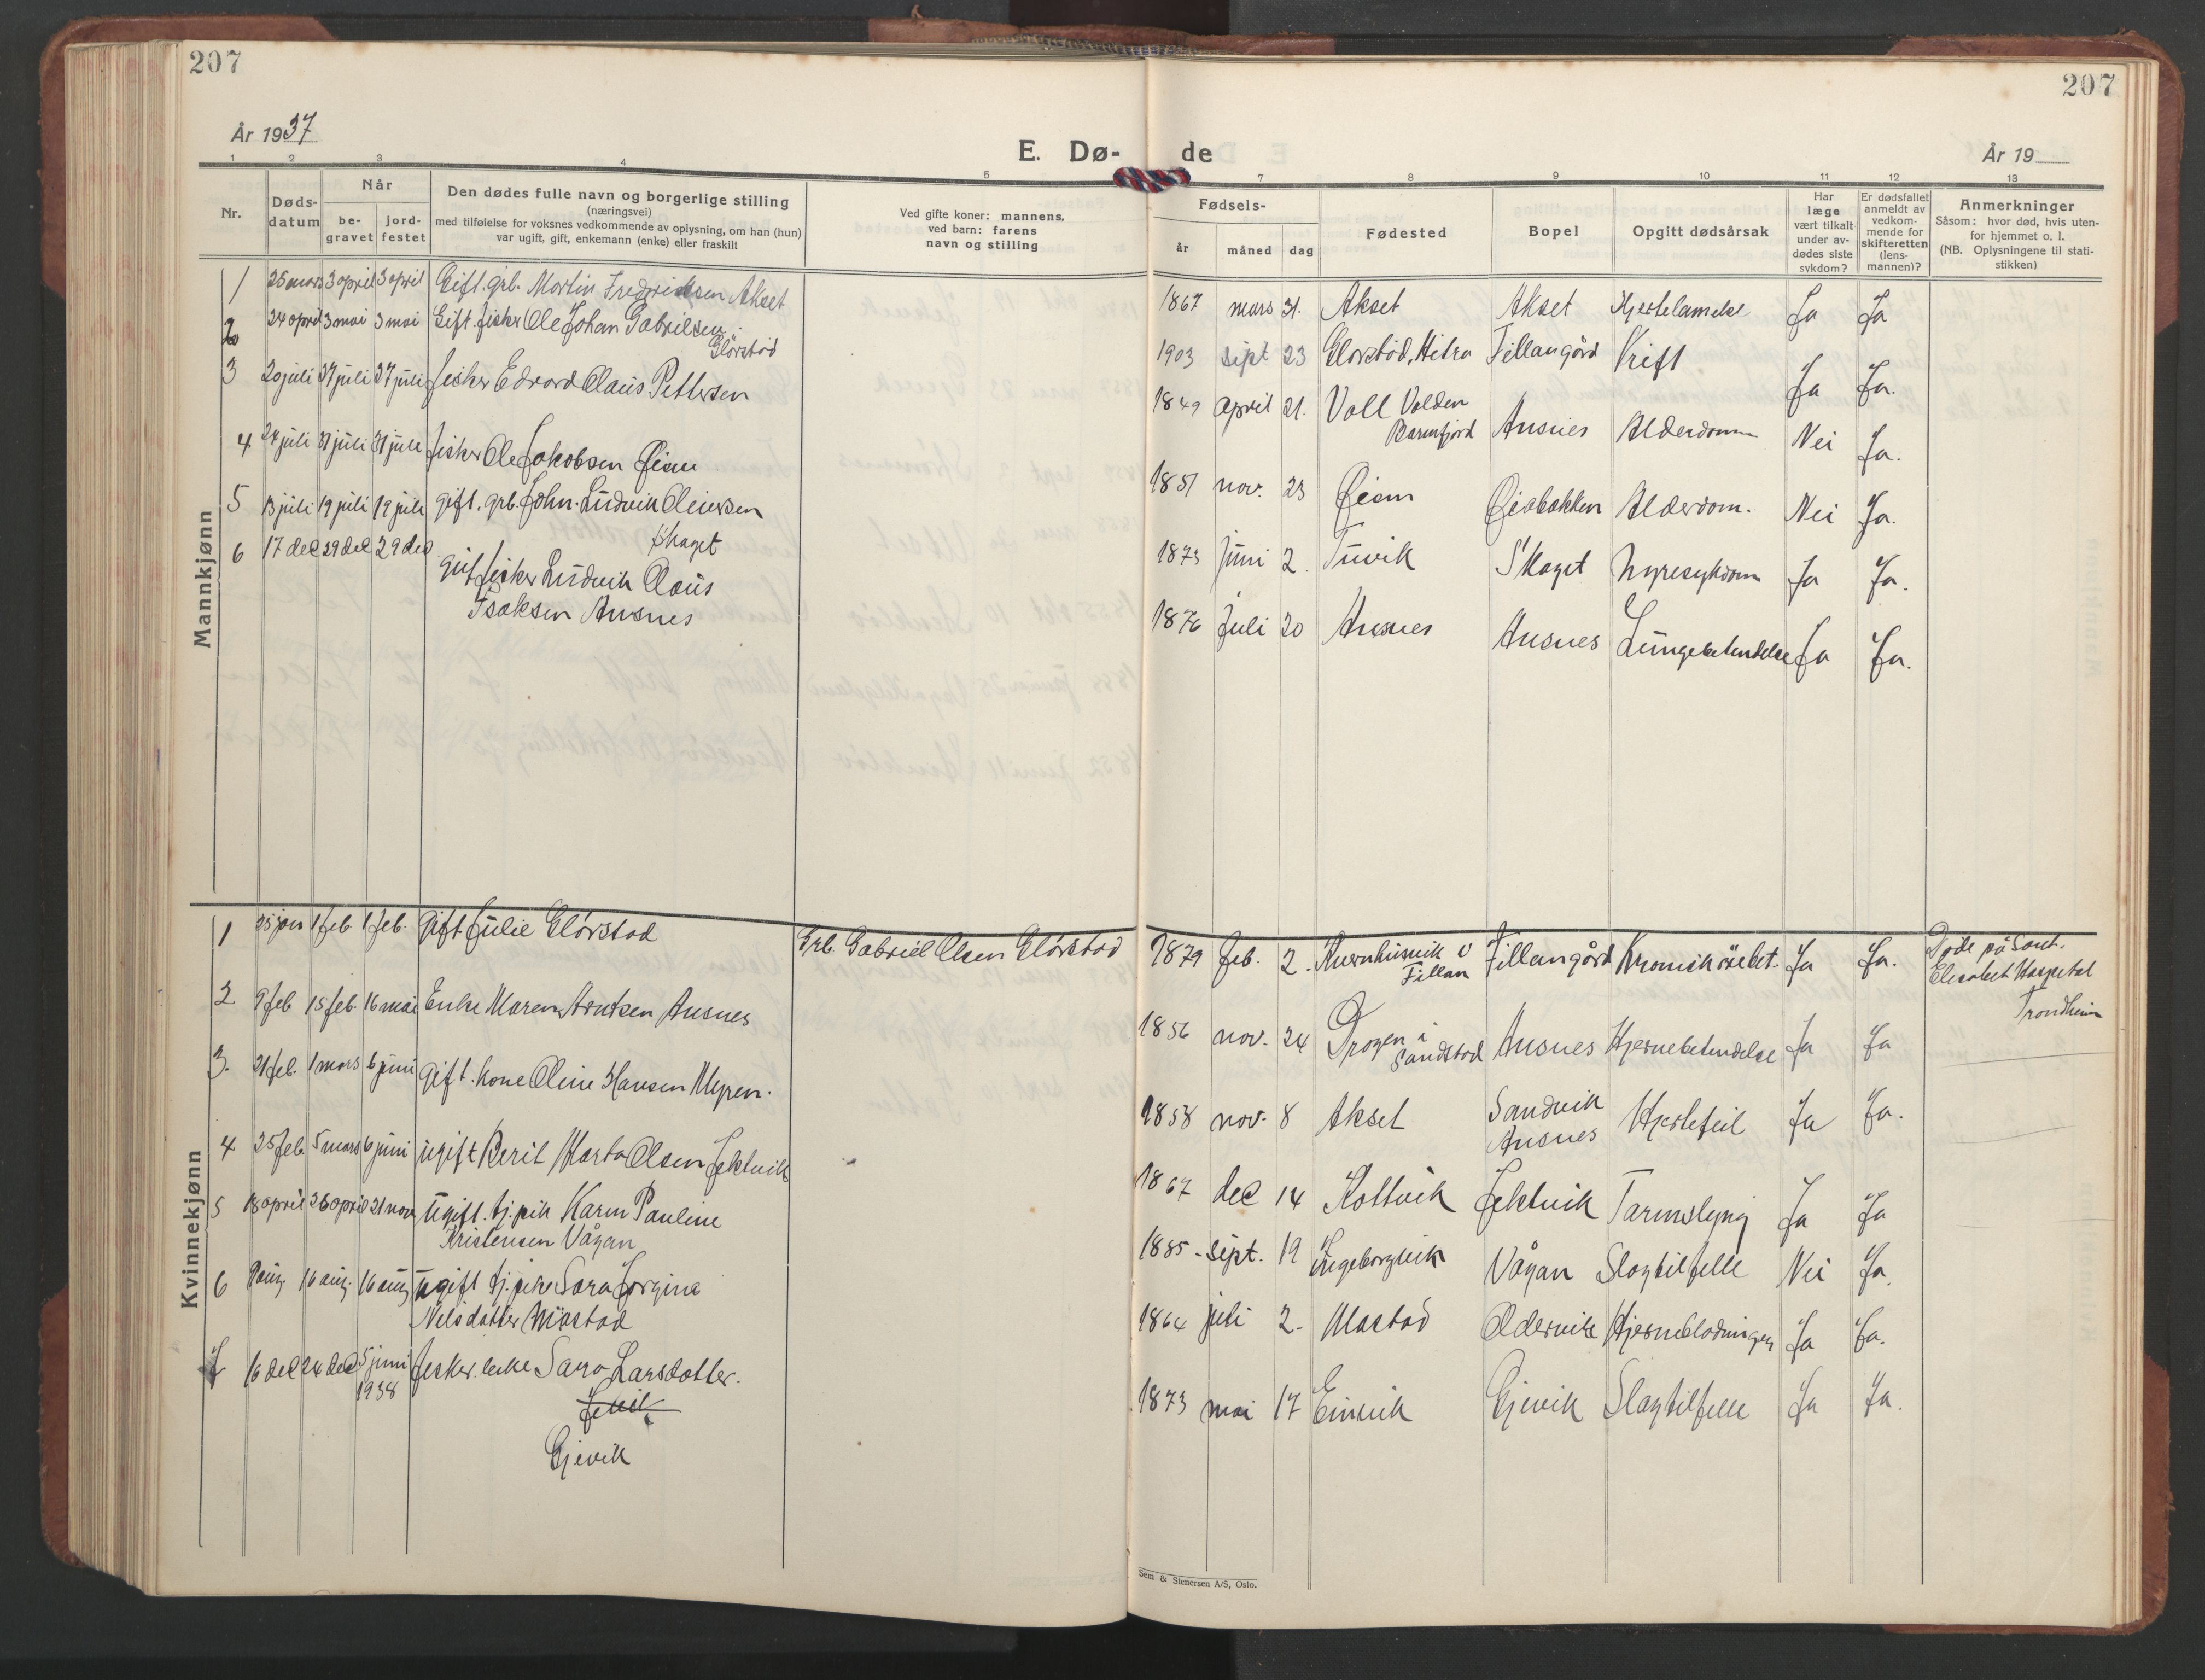 207
207
År 1937
E. Dø-
de
År 19
1 2 3 4 5 7 8 9 10 11 12 13
Nr.
Døds-
datum
Når
be-
gravet
jord-
festet
Den dødes fulle navn og borgerlige stilling
(næringsvei)
med tilføielse for voksnes vedkommende av oplysning, om han (hun)
var ugift, gift, enkemann (enke) eller fraskilt
Ved gifte koner: mannens,
ved barn: farens
navn og stilling
Fødsels-
år
måned
dag
Fødested
Bopel
Opgitt dødsårsak
Har
læge
vært tilkalt
under av-
dødes siste
sykdom?
Er dødsfallet
anmeldt av
vedkom-
mende for
skifteretten
(lens-
mannen)?
Anmerkninger
Såsom: hvor død, hvis uten-
for hjemmet o. l.
(NB. Oplysningene til stati-
stikken)
Mannkjønn
1 25 mars 3 april 3 april Gift. grb. Martin Fredriksen Akset
1867 mars 31. Akset Akset Hjertelamelse Ja Ja
2 24 april 3 mai 3 mai Gift. fisker Ole Johan Gabrielsen
Glørstad
1903 sept 23 Glørstad, Hitra Fillangård Kreft Ja Ja.
3 20 juli 27 juli 27 juli fisker Edvard Claus Pettersen
1849 april 21. Voll Valden
Barmfjord
Ansnes Alderdom Nei Ja.
4 24 juli 31 juli 31 juli fisker Ole Jakobsen Øien
1851 nov. 23 Øien Øiabakken Alderdom. Nei Ja.
5 13 juli 19 juli 19 juli gift. grb. John Ludvik Oliversen
Skaget
1873 juni 2. Tuvik Skaget Nyresykdom Ja Ja.
6 17 dec 29 dec 29 dec gift fisker Ludvik Claus
Isaksen Ansnes
1876 juli 20 Ansnes Ansnes Lungebetendelse Ja Ja.
Kvinnekjønn
1 25 jan 1 feb 1 feb. gift Julie Glørstad
Grb. Gabriel Olsen Glørstad
1879 feb. 2. Kvernhusvik i
Fillan
Fillangård Kronisk Ja Ja.
Døde på Sant.
Elisabet Hospital
Trondheim
2 9 feb 15 feb. 16 mai Enke Maren Arntsen Ansnes
1856 nov. 24 Drogen i
Sandstad
Ansnes Hjernebetendelse Ja Ja
3. 21 feb. 1 mars 6 juni gift. kone Oline Hansen Myren.
1858 nov. 8 Akset Sandvik
Ansnes
Hjertefeil Ja Ja.
4 25 feb. 5 mars 6 juni ugift Beril Marta Olsen Jektvik
1867 dec 14 Kottvik Jektvik Tarmslyng Ja Ja
5 18 april 26 april 21 nov ugift. tj.pik Karen Pauline
Kristensen Vågan
1885 sept. 19 Ingeborgvik Vågan Slagtilfelle Nei Ja.
6 9 aug 16 aug. 16 aug ugift tj.pike Sara Jorgine
Nilsdatter Mastad
1864 juli 2. Mastad Oldervik Hjerneblødninger Ja Ja.
7 16 dec 24 dec 5 juni
1938
fisker. enke Sara Larsdatter.
Gjevik
1873 mai 17 Einvik Gjevik Slagtilfelle Ja Ja.
Sem & Stenersen A/S, Oslo.